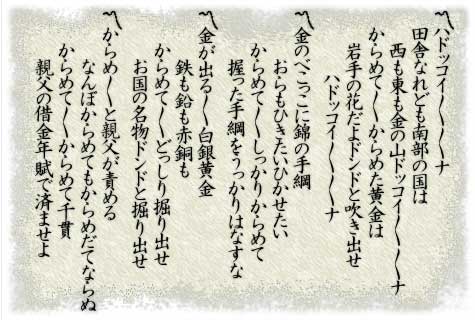 〽ハドッコイ〳〵〳〵〳〵ナ
田舎なれども南部の国は
西も東も金の山ドッコイ〳〵〳〵〳〵ナ
からめて〳〵からめた黄金は
岩手の花だよドンドと吹き出せ
ハドッコイ〳〵〳〵〳〵ナ
〽金のべこっこに錦の手綱
おらもひきたいひかせたい
からめて〳〵しっかりからめて
握った手綱をうっかりはなすな
〽金が出る〳〵白銀黄金
鉄も鉛も赤銅も
からめて〳〵どっしり掘り出せ
お国の名物ドンドと掘り出せ
〽からめ〳〵と親父が責める
なんぼからめてもからめだてならぬ
からめて〳〵からめて千貫
親父の借金年賦で済ませよ